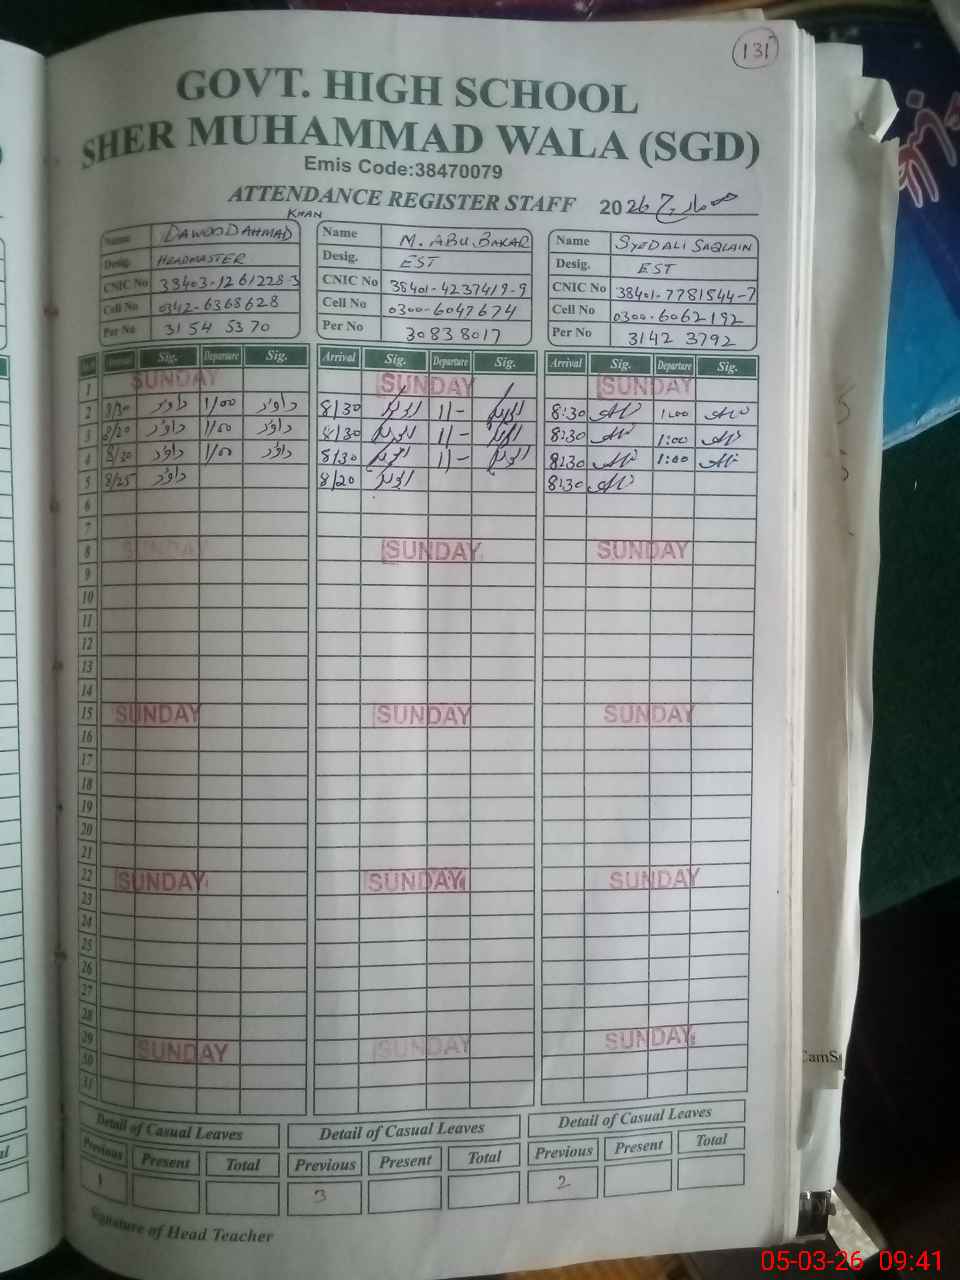 131
GOVT. HIGH SCHOOL
SHER MUHAMMAD WALA (SGD)
Emis Code:38470079
ATTENDANCE REGISTER STAFF 2026 مارچ
KHAN
Name DAWOOD AHMAD
Desig. HEADMASTER
CNIC No 38403-1261228-3
Cell No 0342-6368628
Per No 3154 5370
Name M. ABU BAKAR
Desig. EST
CNIC No 38401-4237419-9
Cell No 0300-6047674
Per No 30838017
Name SYED ALI SAQLAIN
Desig. EST
CNIC No 38401-7781544-7
Cell No 0300-6062192
Per No 3142 3792
Arrival Sig. Departure Sig. Arrival Sig. Departure Sig. Arrival Sig. Departure Sig.
1 SUNDAY SUNDAY SUNDAY
2 8/30 داؤد 1/00 داؤد 8/30 1/- 8:30 1:00
3 8/20 داؤد 1/00 داؤد 8/30 1/- 8:30 1:00
4 8/30 داؤد 1/00 داؤد 8/30 1/- 8:30 1:00
5 8/25 داؤد 8/20 8:30
6
7
8 SUNDAY SUNDAY SUNDAY
9
10
11
12
13
14
15 SUNDAY SUNDAY SUNDAY
16
17
18
19
20
21
22 SUNDAY SUNDAY SUNDAY
23
24
25
26
27
28
29 SUNDAY SUNDAY SUNDAY
30
31
Detail of Casual Leaves Detail of Casual Leaves Detail of Casual Leaves
Previous Present Total Previous Present Total Previous Present Total
1 3 2
Signature of Head Teacher
CamS
05-03-26 09:41